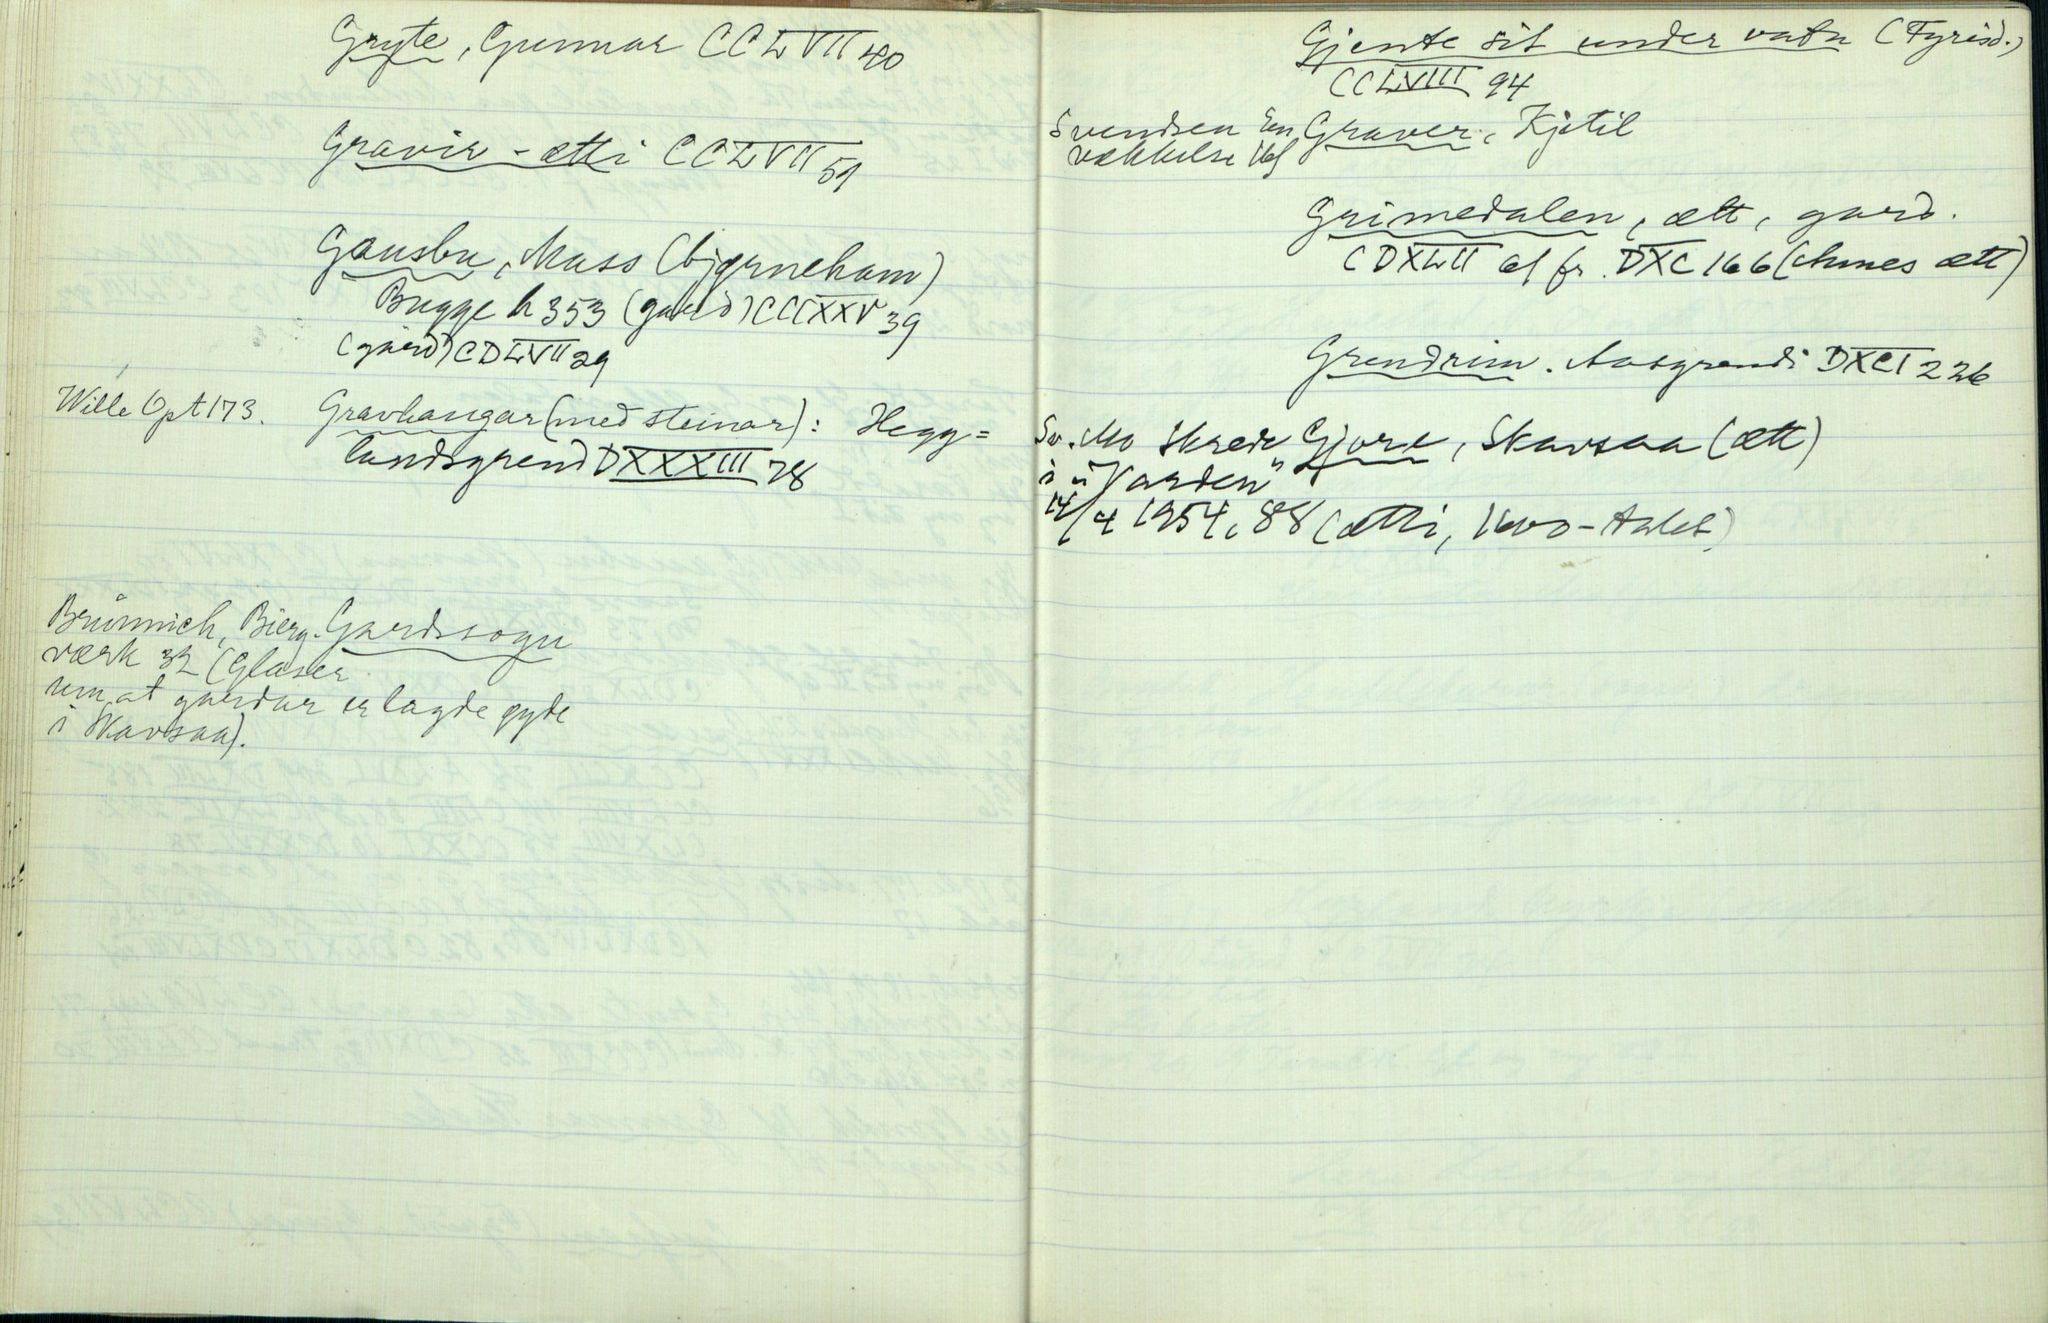 Gryte, Gunnar CCLVII 40
Gravir-ætti CCLVII 51
Gausbu, Mass (bjørneham)
Bugge h 353 (gard) CCCXXV 39
(gard) CDLVII 29
Wille Opt 173. Gravhaugar (med steinar): Hegg=
landsgrend DXXXIII 78
Brünnich, Bierg- Gardssogu
værk 32 (Glaser
um at gardar er lagde øyde
i Skavsaa).
Gjente sit under vatn (Fyrisd.)
CCLVIII 94
Svendsen En Graver, Kjetil
vækkelse 161
Grimedalen, ætt, gard.
CDXLII 61 fr. DXC 166 (ætt)
Grendrim. Aasgrendi DXCI 226
Sv. Mo Skrede Gjore, Skavsaa (ætt)
i "Varden"
14/4 1954, 88 (ætti, 1600-talet)